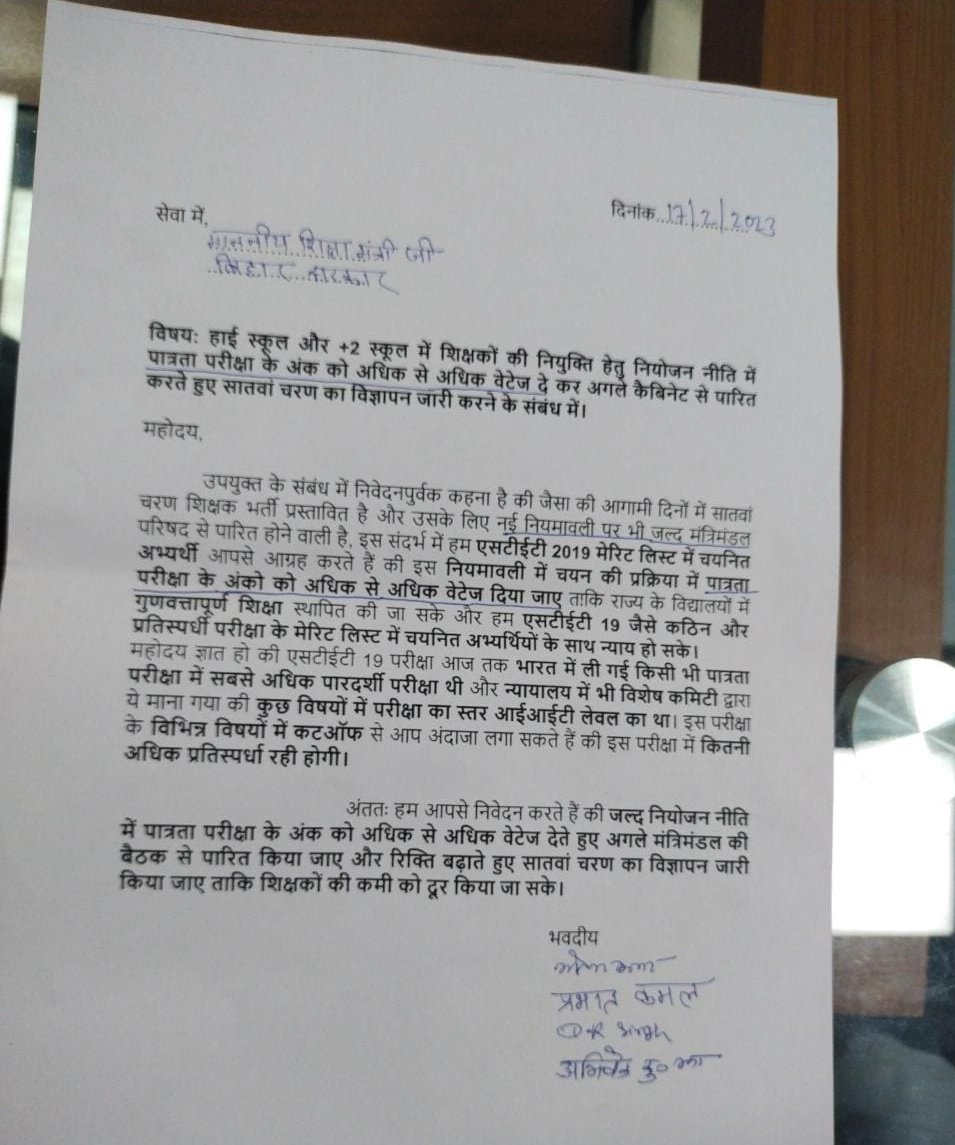 दिनांक..17/2/2023
सेवा में,
माननीय शिक्षा मंत्री जी
बिहार सरकार
विषय: हाई स्कूल और +2 स्कूल में शिक्षकों की नियुक्ति हेतु नियोजन नीति में
पात्रता परीक्षा के अंक को अधिक से अधिक वेटेज दे कर अगले कैबिनेट से पारित
करते हुए सातवां चरण का विज्ञापन जारी करने के संबंध में।
महोदय,
उपयुक्त के संबंध में निवेदनपुर्वक कहना है की जैसा की आगामी दिनों में सातवां
चरण शिक्षक भर्ती प्रस्तावित है और उसके लिए नई नियमावली पर भी जल्द मंत्रिमंडल
परिषद से पारित होने वाली है, इस संदर्भ में हम एसटीईटी 2019 मेरिट लिस्ट में चयनित
अभ्यर्थी आपसे आग्रह करते हैं की इस नियमावली में चयन की प्रक्रिया में पात्रता
परीक्षा के अंको को अधिक से अधिक वेटेज दिया जाए ताकि राज्य के विद्यालयों में
गुणवत्तापूर्ण शिक्षा स्थापित की जा सके और हम एसटीईटी 19 जैसे कठिन और
प्रतिस्पर्धी परीक्षा के मेरिट लिस्ट में चयनित अभ्यर्थियों के साथ न्याय हो सके।
महोदय ज्ञात हो की एसटीईटी 19 परीक्षा आज तक भारत में ली गई किसी भी पात्रता
परीक्षा में सबसे अधिक पारदर्शी परीक्षा थी और न्यायालय में भी विशेष कमिटी द्वारा
ये माना गया की कुछ विषयों में परीक्षा का स्तर आईआईटी लेवल का था। इस परीक्षा
के विभिन्न विषयों में कटऑफ से आप अंदाजा लगा सकते हैं की इस परीक्षा में कितनी
अधिक प्रतिस्पर्धा रही होगी।
अंततः हम आपसे निवेदन करते हैं की जल्द नियोजन नीति
में पात्रता परीक्षा के अंक को अधिक से अधिक वेटेज देते हुए अगले मंत्रिमंडल की
बैठक से पारित किया जाए और रिक्ति बढ़ाते हुए सातवां चरण का विज्ञापन जारी
किया जाए ताकि शिक्षकों की कमी को दूर किया जा सके।
भवदीय
प्रभात कमल
कु० झा